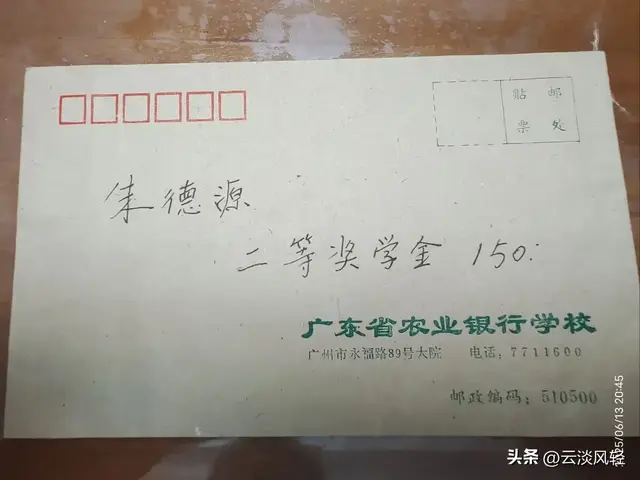 贴 邮
票 处
朱德源
二等奖学金 150:
广东省农业银行学校
广州市永福路89号大院 电话:7711600
邮政编码:510500
2025/06/13 20:45
头条 @云淡风轻